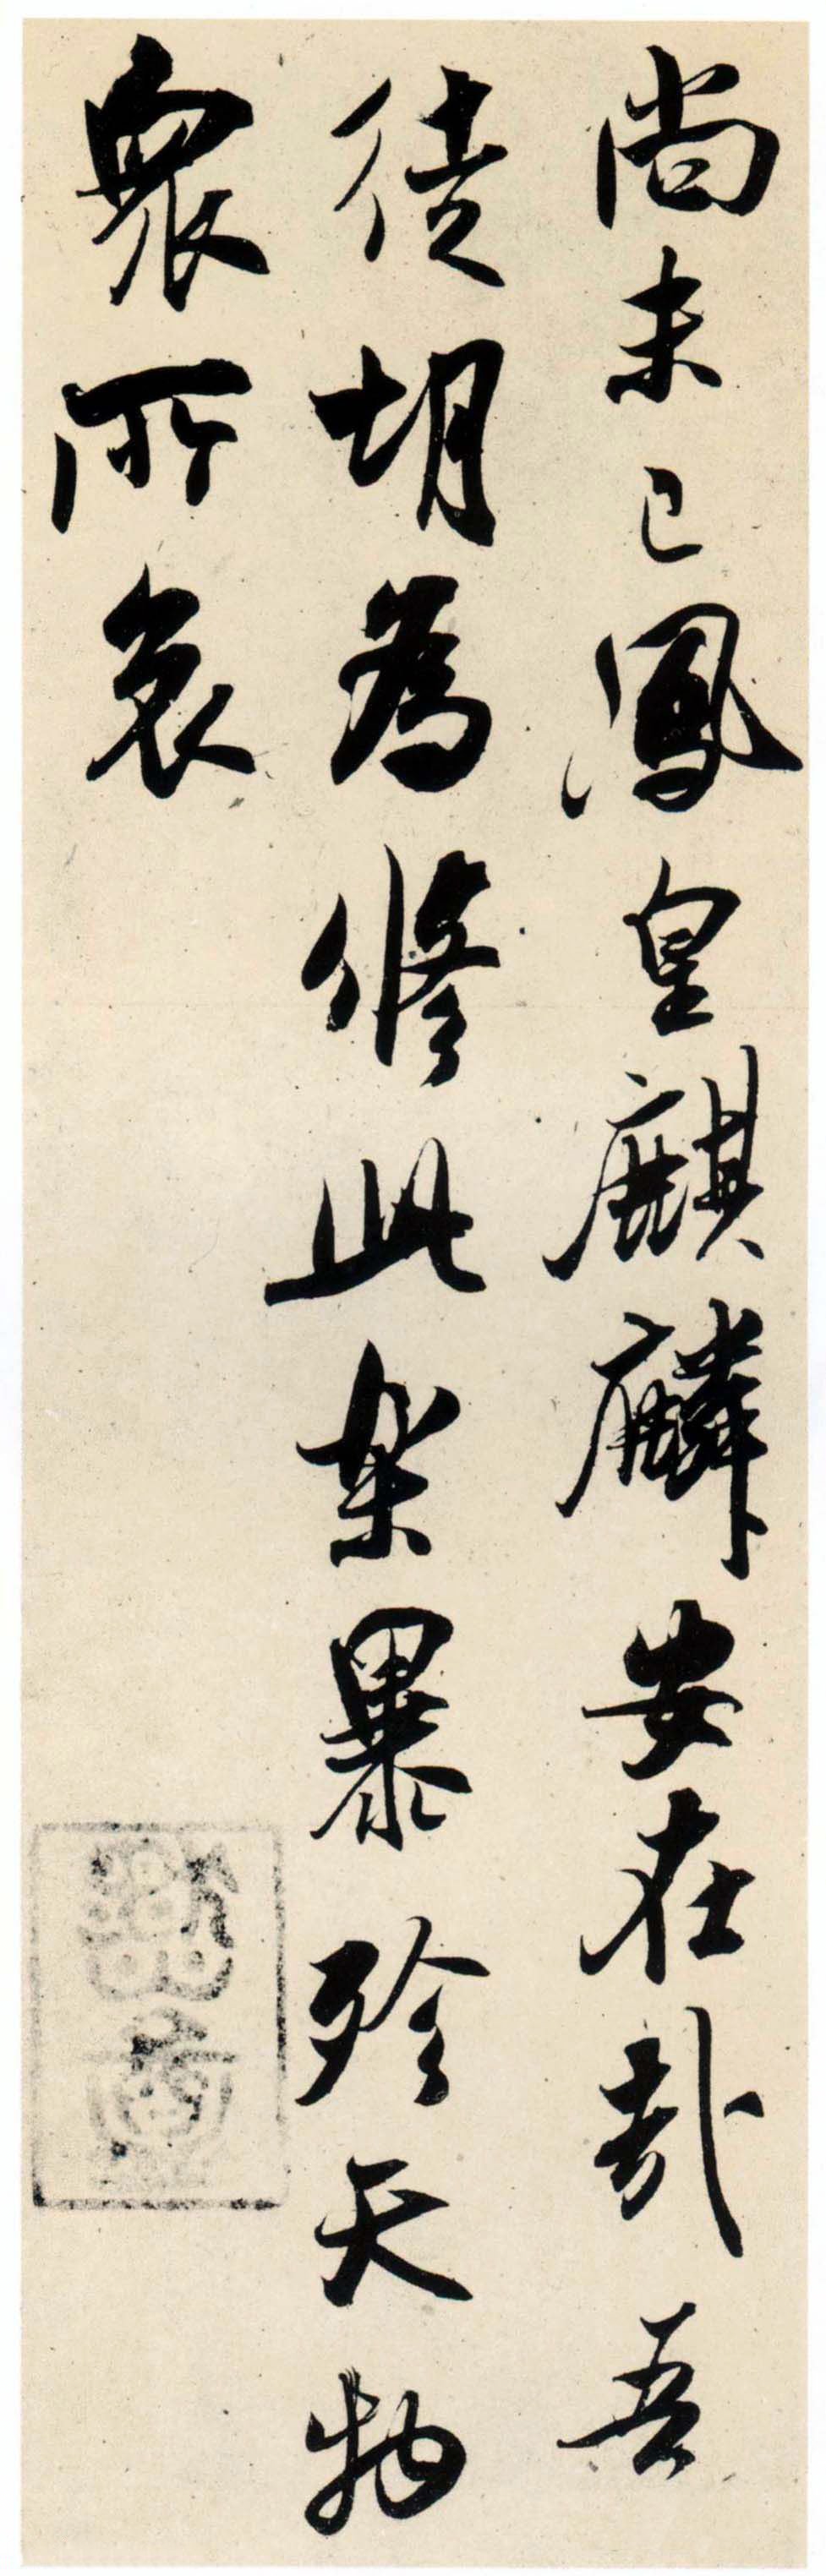 尚未已鳳皇麒麟安在哉吾
徒胡為脩此樂暴殄天物
眾所哀